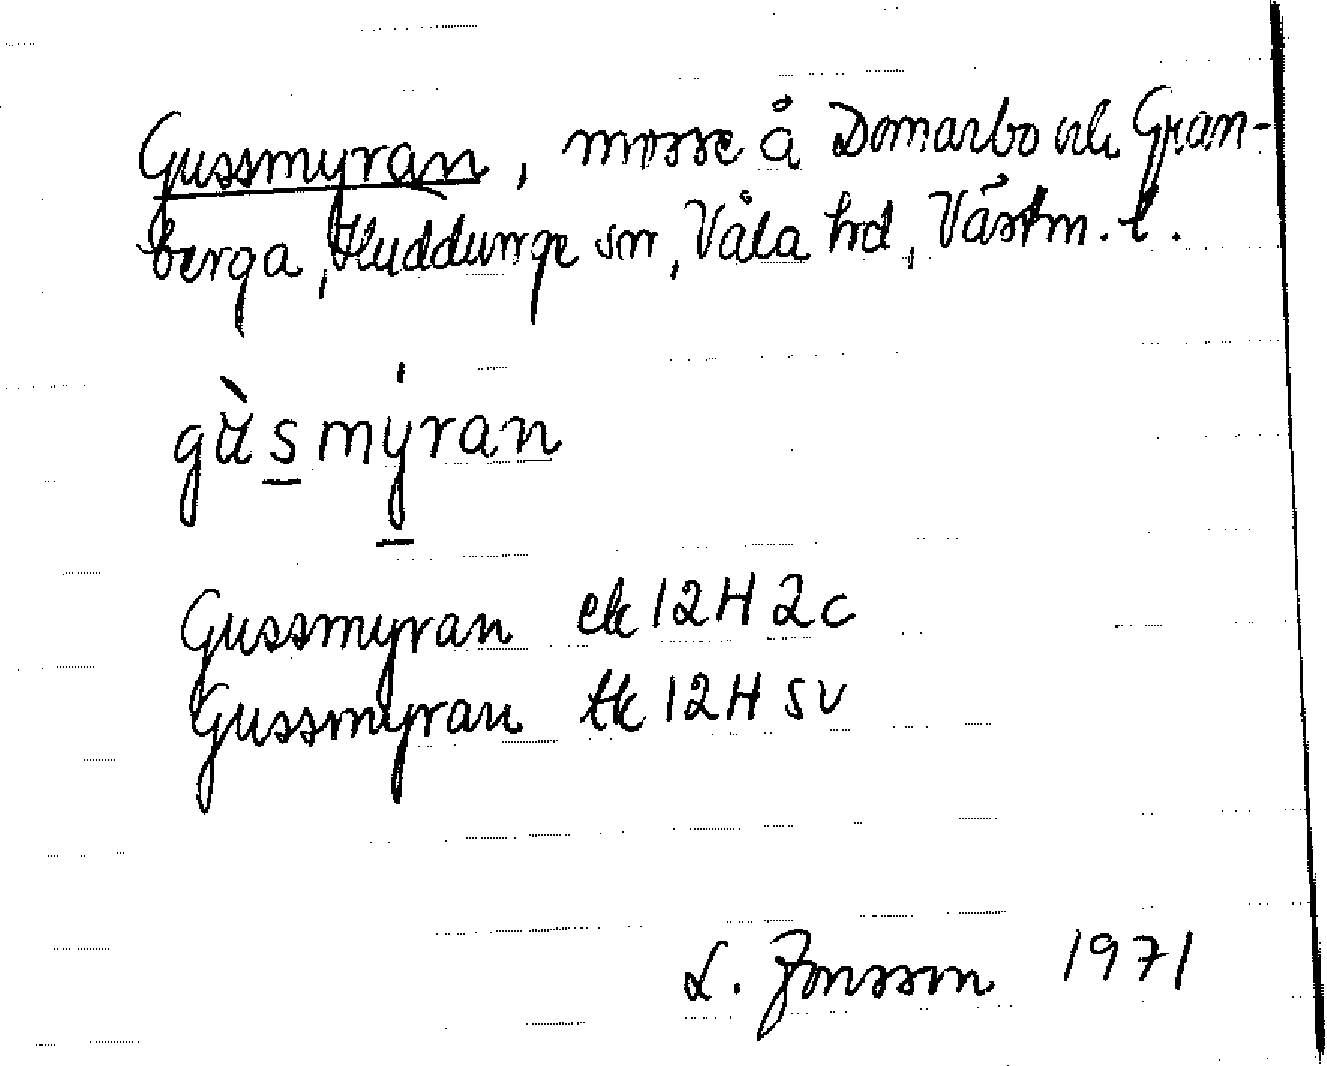 Gussmyran, mosse å Domarbo och Gran-
berga, Huddunge sn, Våla hrd, Västm. l.
gùsmýran
Gussmyran ek 12H 2c
Gussmyran tk 12H SV
L. Jonsson 1971